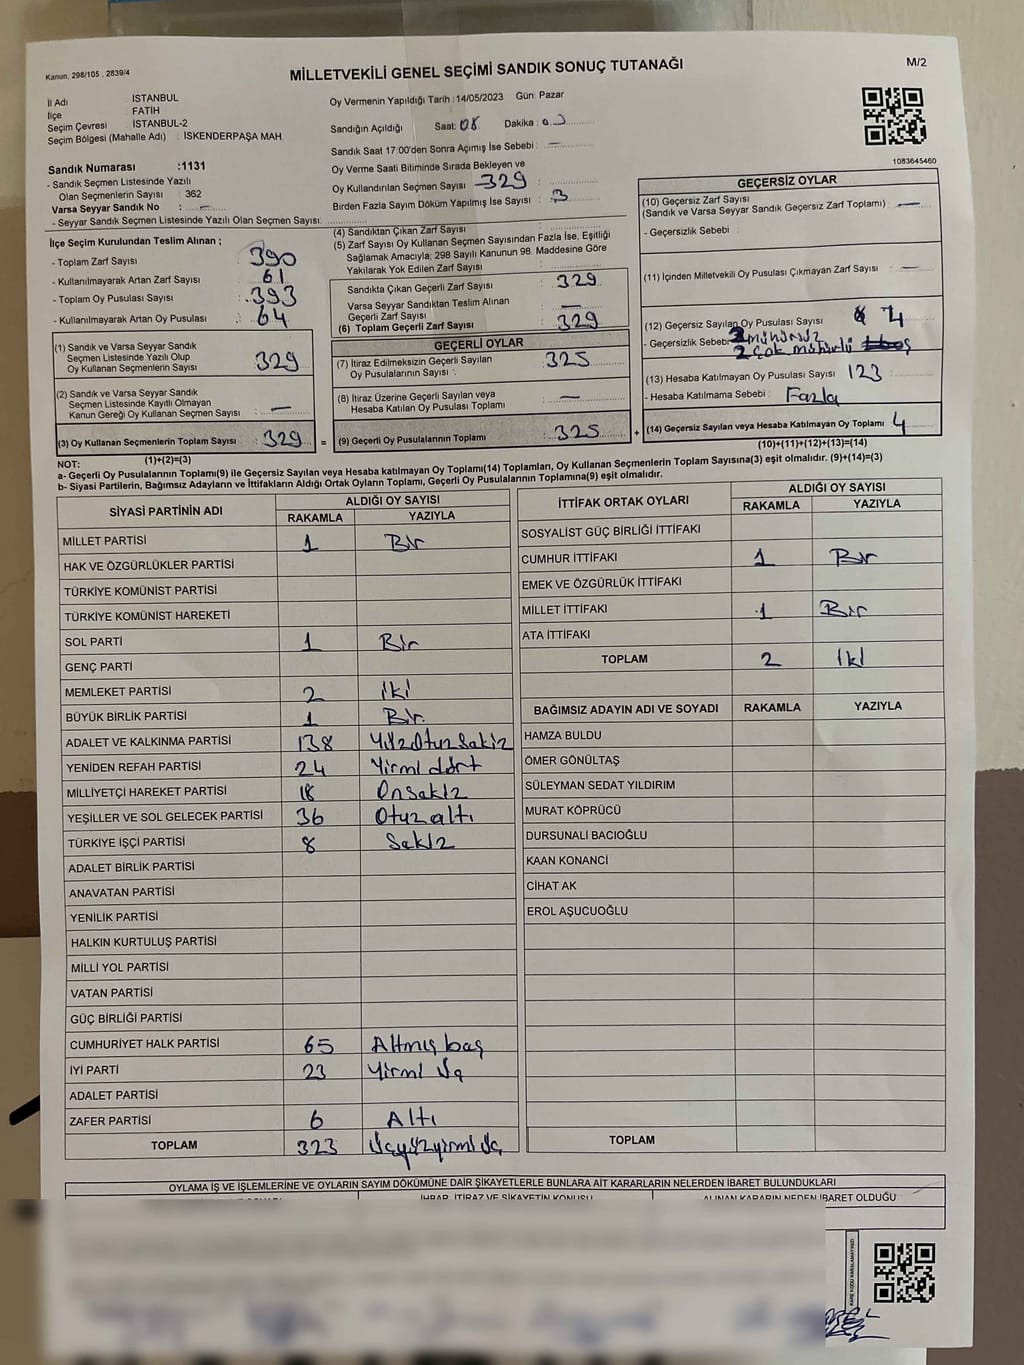 Kanun, 298/105 , 2839/4
MİLLETVEKİLİ GENEL SEÇİMİ SANDIK SONUÇ TUTANAĞI
M/2
İl Adı : İSTANBUL
İlçe : FATİH
Seçim Çevresi : İSTANBUL-2
Seçim Bölgesi (Mahalle Adı) : İSKENDERPAŞA MAH.
Sandık Numarası :1131
- Sandık Seçmen Listesinde Yazılı
Olan Seçmenlerin Sayısı : 362
Varsa Seyyar Sandık No : —
- Seyyar Sandık Seçmen Listesinde Yazılı Olan Seçmen Sayısı:
Oy Vermenin Yapıldığı Tarih :14/05/2023 Gün: Pazar
Sandığın Açıldığı Saat: 08 Dakika :
Sandık Saat 17:00'den Sonra Açımış İse Sebebi : —
Oy Verme Saati Bitiminde Sırada Bekleyen ve
Oy Kullandırılan Seçmen Sayısı 329
Birden Fazla Sayım Döküm Yapılmış İse Sayısı : 3
1083645460
İlçe Seçim Kurulundan Teslim Alınan ;
- Toplam Zarf Sayısı : 390
- Kullanılmayarak Artan Zarf Sayısı : 61
- Toplam Oy Pusulası Sayısı : 393
- Kullanılmayarak Artan Oy Pusulası : 64
(1) Sandık ve Varsa Seyyar Sandık
Seçmen Listesinde Yazılı Olup
Oy Kullanan Seçmenlerin Sayısı : 329
(2) Sandık ve Varsa Seyyar Sandık
Seçmen Listesinde Kayıtlı Olmayan
Kanun Gereği Oy Kullanan Seçmen Sayısı : —
(3) Oy Kullanan Seçmenlerin Toplam Sayısı : 329 =
(1)+(2)=(3)
(4) Sandıktan Çıkan Zarf Sayısı :
(5) Zarf Sayısı Oy Kullanan Seçmen Sayısından Fazla İse, Eşitliği
Sağlamak Amacıyla; 298 Sayılı Kanunun 98. Maddesine Göre
Yakılarak Yok Edilen Zarf Sayısı :
Sandıkta Çıkan Geçerli Zarf Sayısı : 329
Varsa Seyyar Sandıktan Teslim Alınan
Geçerli Zarf Sayısı : —
(6) Toplam Geçerli Zarf Sayısı : 329
GEÇERLİ OYLAR
(7) İtiraz Edilmeksizin Geçerli Sayılan
Oy Pusulalarının Sayısı : 325
(8) İtiraz Üzerine Geçerli Sayılan veya
Hesaba Katılan Oy Pusulası Toplamı : —
(9) Geçerli Oy Pusulalarının Toplamı : 325 +
GEÇERSİZ OYLAR
(10) Geçersiz Zarf Sayısı
(Sandık ve Varsa Seyyar Sandık Geçersiz Zarf Toplamı) : —
- Geçersizlik Sebebi :
(11) İçinden Milletvekili Oy Pusulası Çıkmayan Zarf Sayısı : —
(12) Geçersiz Sayılan Oy Pusulası Sayısı : 4
- Geçersizlik Sebebi mühürsüz
2 çok mühürlü
(13) Hesaba Katılmayan Oy Pusulası Sayısı 123
- Hesaba Katılmama Sebebi : Fazla
(14) Geçersiz Sayılan veya Hesaba Katılmayan Oy Toplamı : 4
(10)+(11)+(12)+(13)=(14)
NOT:
a- Geçerli Oy Pusulalarının Toplamı(9) ile Geçersiz Sayılan veya Hesaba katılmayan Oy Toplamı(14) Toplamları, Oy Kullanan Seçmenlerin Toplam Sayısına(3) eşit olmalıdır. (9)+(14)=(3)
b- Siyasi Partilerin, Bağımsız Adayların ve İttifakların Aldığı Ortak Oyların Toplamı, Geçerli Oy Pusulalarının Toplamına(9) eşit olmalıdır.
SİYASİ PARTİNİN ADI ALDIĞI OY SAYISI
RAKAMLA YAZIYLA
MİLLET PARTİSİ 1 Bir
HAK VE ÖZGÜRLÜKLER PARTİSİ
TÜRKİYE KOMÜNİST PARTİSİ
TÜRKİYE KOMÜNİST HAREKETİ
SOL PARTİ 1 Bir
GENÇ PARTİ
MEMLEKET PARTİSİ 2 iki
BÜYÜK BİRLİK PARTİSİ 1 Bir
ADALET VE KALKINMA PARTİSİ 138 YüzOtuzSekiz
YENİDEN REFAH PARTİSİ 24 Yirmi dört
MİLLİYETÇİ HAREKET PARTİSİ 18 Onsekiz
YEŞİLLER VE SOL GELECEK PARTİSİ 36 Otuzaltı
TÜRKİYE İŞÇİ PARTİSİ 8 Sekiz
ADALET BİRLİK PARTİSİ
ANAVATAN PARTİSİ
YENİLİK PARTİSİ
HALKIN KURTULUŞ PARTİSİ
MİLLİ YOL PARTİSİ
VATAN PARTİSİ
GÜÇ BİRLİĞİ PARTİSİ
CUMHURİYET HALK PARTİSİ 65 Altmış beş
İYİ PARTİ 23 Yirmi Üç
ADALET PARTİSİ
ZAFER PARTİSİ 6 Altı
TOPLAM 323 Üçyüzyirmi Üç
İTTİFAK ORTAK OYLARI ALDIĞI OY SAYISI
RAKAMLA YAZIYLA
SOSYALİST GÜÇ BİRLİĞİ İTTİFAKI
CUMHUR İTTİFAKI 1 Bir
EMEK VE ÖZGÜRLÜK İTTİFAKI
MİLLET İTTİFAKI 1 Bir
ATA İTTİFAKI
TOPLAM 2 iki
BAĞIMSIZ ADAYIN ADI VE SOYADI RAKAMLA YAZIYLA
HAMZA BULDU
ÖMER GÖNÜLTAŞ
SÜLEYMAN SEDAT YILDIRIM
MURAT KÖPRÜCÜ
DURSUNALİ BACIOĞLU
KAAN KONANCİ
CİHAT AK
EROL AŞUCUOĞLU
TOPLAM
OYLAMA İŞ VE İŞLEMLERİNE VE OYLARIN SAYIM DÖKÜMÜNE DAİR ŞİKAYETLERLE BUNLARA AİT KARARLARIN NELERDEN İBARET BULUNDUKLARI
İHBAR, İTİRAZ VE ŞİKAYETİN KONUSU ALINAN KARARIN NEDEN İBARET OLDUĞU
KARE KODU KARALAMAYINIZ!